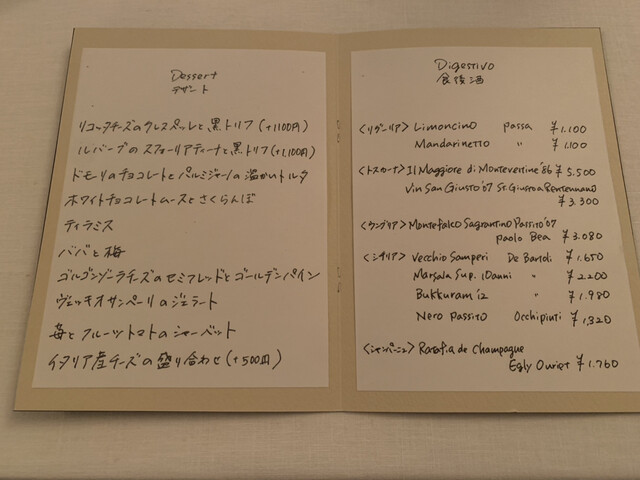 Dessert
デザート
リコッタチーズのクレスペッレと黒トリフ(+1100円)
ルバーブのスフォーリアティーナと黒トリフ(+1,100円)
ドモーリのチョコレートとパルミジャーノの温かいトルタ
ホワイトチョコレートムースとさくらんぼ
ティラミス
ババと梅
ゴルゴンゾーラチーズのセミフレッドとゴールデンパイン
ヴェッキオサンペーリのジェラート
苺とフルーツトマトのシャーベット
イタリア産チーズの盛り合わせ(+500円)
Digestivo
食後酒
<リグーリア> Limoncino passa ¥1.100
Mandarinetto 〃 ¥1.100
<トスカーナ> Il Maggiore di Montevertine '86 ¥5.500
Vin San Giusto '07 St. Giusto a Rentennano
¥3.300
<ウンブリア> Montefalco Sagrantino Passito '07
paolo Bea ¥3.080
<シチリア> Vecchio Samperi De Bartoli ¥1.650
Marsala Sup. 10anni 〃 ¥2.200
Bukkuram '12 〃 ¥1.980
Nero Passito Occhipinti ¥1,320
<シャンパーニュ> Ratafia de Champagne
Egly Ouriet ¥1.760